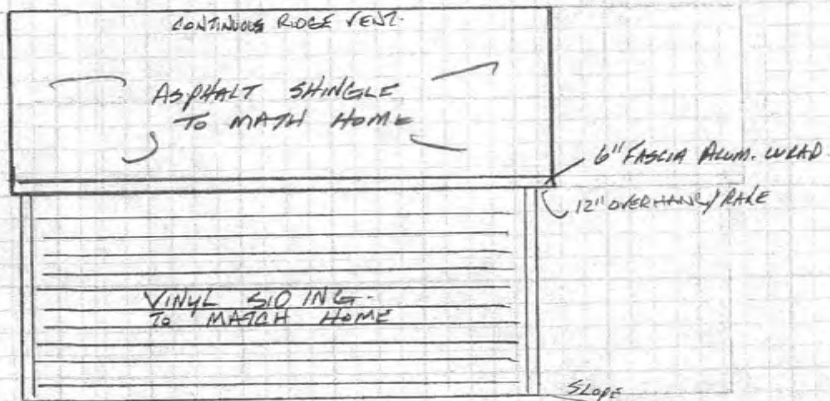 CONTINUOUS RIDGE VENT.
ASPHALT SHINGLE
TO MATH HOME
6" FASCIA ALUM. WRAP.
12" OVERHANG/RAKE
VINYL SIDING.
TO MATCH HOME
SLOPE